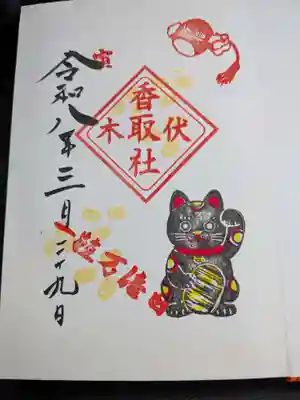 伏木
香取社
令和八年三月二十九日